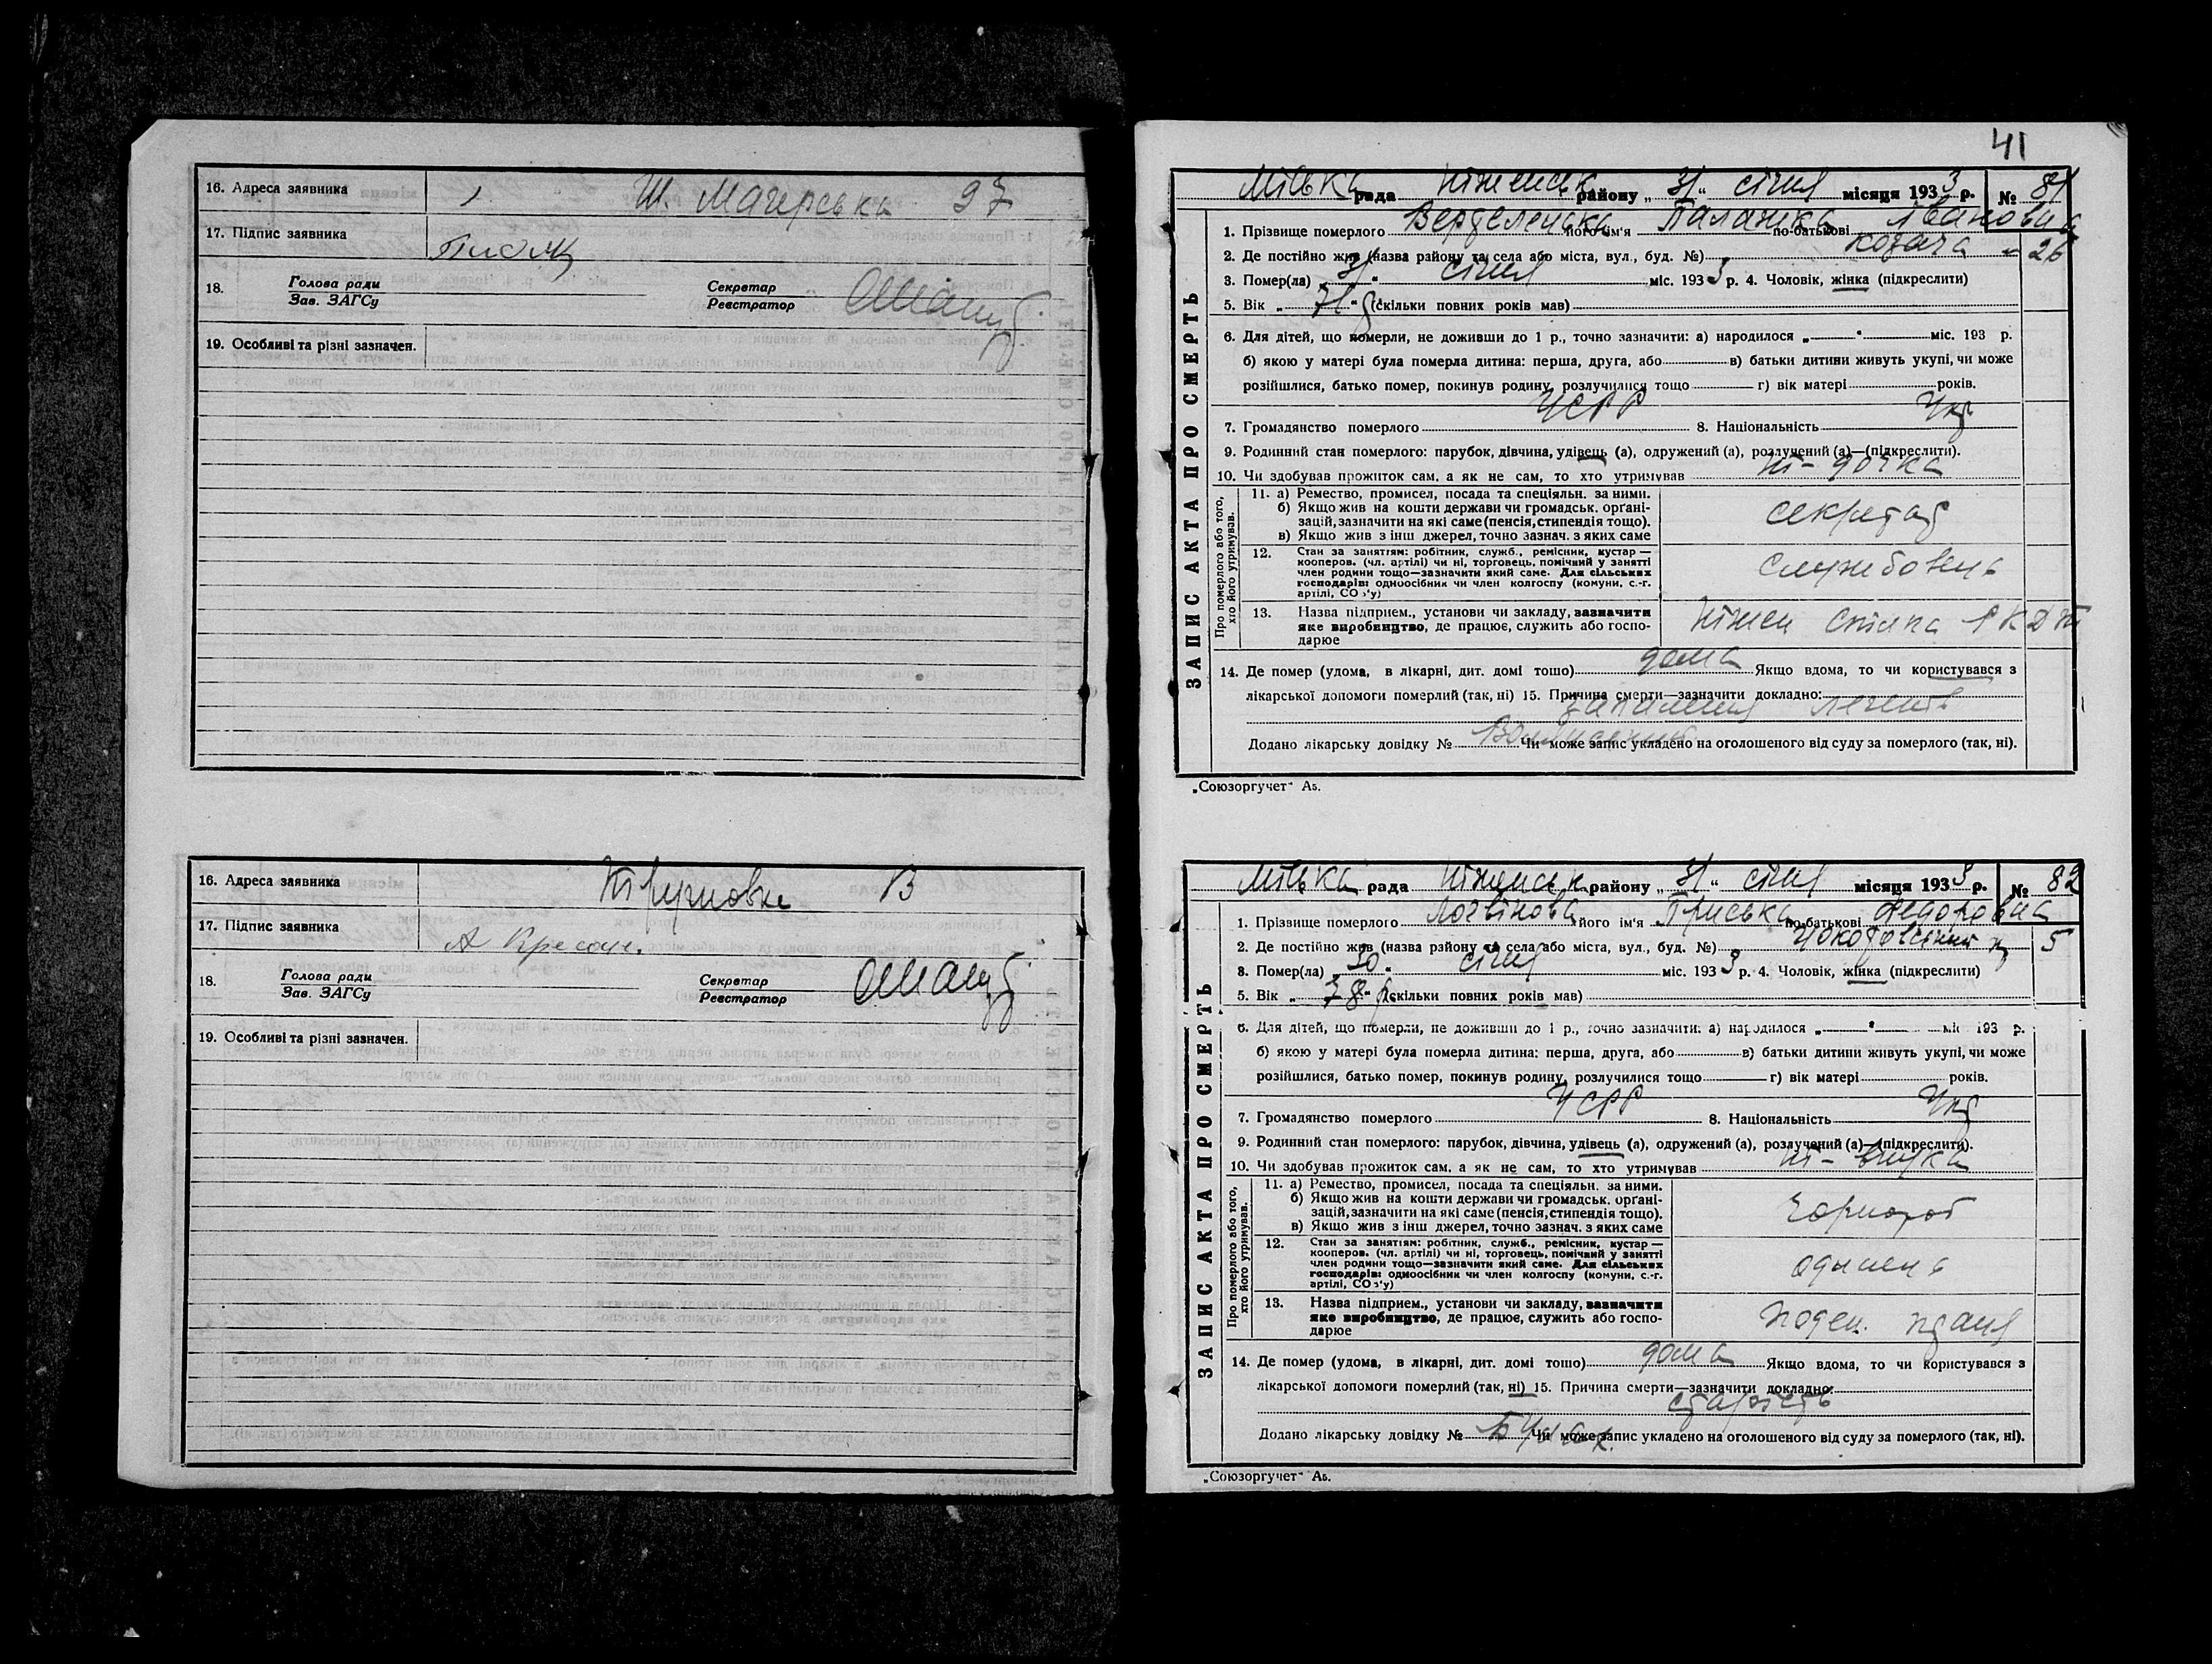 16. Адреса заявника Ш. Магерська 97
17. Підпис заявника
18. Голова ради
Зав. ЗАГСу
Секретар
Реєстратор
19. Особливі та різні зазначен.
16. Адреса заявника 13
17. Підпис заявника
18. Голова ради
Зав. ЗАГСу
Секретар
Реєстратор
19. Особливі та різні зазначен.
41
ЗАПИС АКТА ПРО СМЕРТЬ
Міська рада Ніженськ району „ 31 “ січня місяця 193 3 р. № 81
1. Прізвище померлого його ім'я Палажка по-батькові Івановна
2. Де постійно жив (назва району та села або міста, вул., буд. №) Козача 26
3. Помер(ла) 31 “ січня міс. 193 3 р. 4. Чоловік, жінка (підкреслити)
5. Вік „ 71 “ р. (скільки повних років мав)
6. Для дітей, що померли, не доживши до 1 р., точно зазначити: а) народилося „ “ міс. 193 р.
б) якою у матері була померла дитина: перша, друга, або в) батьки дитини живуть укупі, чи може
розійшлися, батько помер, покинув родину, розлучилися тощо г) вік матері років.
7. Громадянство померлого УСРР 8. Національність Укр
9. Родинний стан померлого: парубок, дівчина, удівець (а), одружений (а), розлучений (а)—(підкреслити).
10. Чи здобував прожиток сам, а як не сам, то хто утримував ні - дочка
Про померлого або того, хто його утримував.
11. а) Ремество, промисел, посада та спеціяльн. за ними.
б) Якщо жив на кошти держави чи громадськ. орґані-
зацій, зазначити на які саме (пенсія, стипендія тощо).
в) Якщо жив з інш джерел, точно зазнач. з яких саме
секретар
12. Стан за заняттям: робітник, служб., ремісник, кустар —
кооперов. (чл. артілі) чи ні, торговець, помічний у занятті
член родини тощо—зазначити який саме. Для сільських
господарів: одноосібник чи член колгоспу (комуни, с.-г.
артілі, СОЗ'у)
службовець
13. Назва підприєм., установи чи закладу, зазначити
яке виробництво, де працює, служить або госпо-
дарює
Ніжен Спілка
14. Де помер (удома, в лікарні, дит. домі тощо) дома Якщо вдома, то чи користувався з
лікарської допомоги померлий (так, ні) 15. Причина смерти—зазначити докладно:
запалення легенів
Додано лікарську довідку № Чи може запис укладено на оголошеного від суду за померлого (так, ні).
„Союзоргучет“ А5.
ЗАПИС АКТА ПРО СМЕРТЬ
Міська рада Ніженськ району „ 31 “ січня місяця 193 3 р. № 82
1. Прізвище померлого Логвінова його ім'я Приська по-батькові Федоровна
2. Де постійно жив (назва району та села або міста, вул., буд. №) 5
3. Помер(ла) 30 “ січня міс. 193 3 р. 4. Чоловік, жінка (підкреслити)
5. Вік „ 78 “ р. (скільки повних років мав)
6. Для дітей, що померли, не доживши до 1 р., точно зазначити: а) народилося „ “ міс. 193 р.
б) якою у матері була померла дитина: перша, друга, або в) батьки дитини живуть укупі, чи може
розійшлися, батько помер, покинув родину, розлучилися тощо г) вік матері років.
7. Громадянство померлого УСРР 8. Національність Укр
9. Родинний стан померлого: парубок, дівчина, удівець (а), одружений (а), розлучений (а)—(підкреслити).
10. Чи здобував прожиток сам, а як не сам, то хто утримував ні - внука
Про померлого або того, хто його утримував.
11. а) Ремество, промисел, посада та спеціяльн. за ними.
б) Якщо жив на кошти держави чи громадськ. орґані-
зацій, зазначити на які саме (пенсія, стипендія тощо).
в) Якщо жив з інш джерел, точно зазнач. з яких саме
чорнороб
12. Стан за заняттям: робітник, служб., ремісник, кустар —
кооперов. (чл. артілі) чи ні, торговець, помічний у занятті
член родини тощо—зазначити який саме. Для сільських
господарів: одноосібник чи член колгоспу (комуни, с.-г.
артілі, СОЗ'у)
13. Назва підприєм., установи чи закладу, зазначити
яке виробництво, де працює, служить або госпо-
дарює
поден. праця
14. Де помер (удома, в лікарні, дит. домі тощо) дома Якщо вдома, то чи користувався з
лікарської допомоги померлий (так, ні) 15. Причина смерти—зазначити докладно:
старість
Додано лікарську довідку № Чи може запис укладено на оголошеного від суду за померлого (так, ні).
„Союзоргучет“ А5.